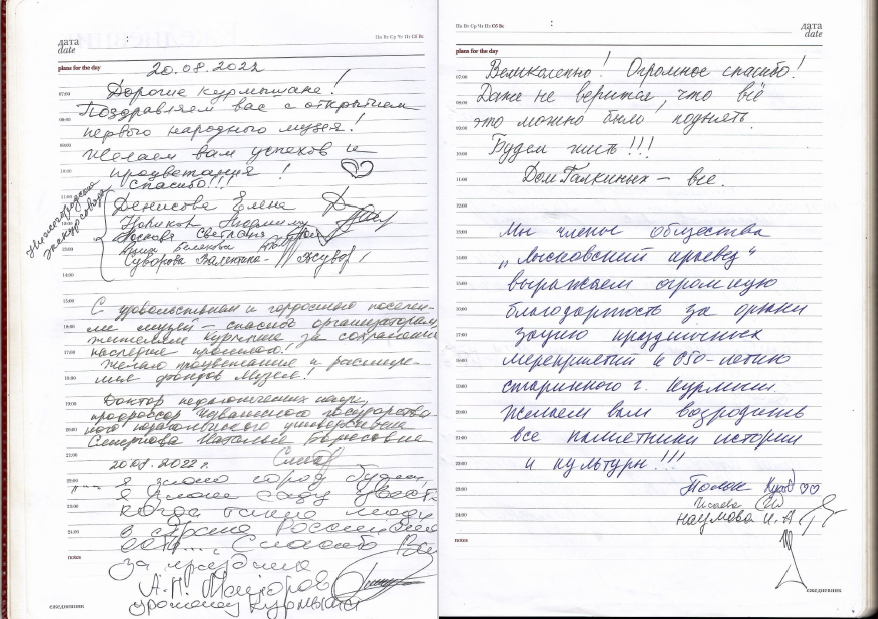 дата
date
Пн Вт Ср Чт Пт Сб Вс
plans for the day
20.08.2022
Дорогие курмышане!
Поздравляем вас с открытием
первого народного музея!
Желаем вам успехов и
процветания!
Спасибо!!!
Нижегородские
экскурсоводы
Денисова Елена
Людмила
Светлана
Суворова Валентина-
С удовольствием и гордостью посети-
ли музей – спасибо организаторам,
жителям Курмыша за сохранение
наследия прошлого!
Желаю процветания и расшире-
ния фондов музея!
Доктор педагогических наук,
профессор Чувашского государствен-
ного педагогического университета
Наталья Борисовна
20.08.2022 г.
я знаю город будет,
я знаю саду цвесть
когда такие люди
в стране Российской
есть... Спасибо Вам
за праздник
А.Н. Майоров
уроженец Курмыша
07:00
08:00
09:00
10:00
11:00
12:00
13:00
14:00
15:00
16:00
17:00
18:00
19:00
20:00
21:00
22:00
23:00
24:00
notes
ежедневник
Пн Вт Ср Чт Пт Сб Вс
дата
date
plans for the day
Великолепно! Огромное спасибо!
Даже не верится, что всё
это можно было поднять.
Будем жить!!!
Дом Галкиных – все.
Мы члены общества
„Лысковский краевед“
выражаем огромную
благодарность за органи
зацию праздничных
мероприятий к 650-летию
старинного г. Курмыш.
Желаем вам возродить
все памятники истории
и культуры!!!
Исаева
Наумова И. А
07:00
08:00
09:00
10:00
11:00
12:00
13:00
14:00
15:00
16:00
17:00
18:00
19:00
20:00
21:00
22:00
23:00
24:00
notes
ежедневник